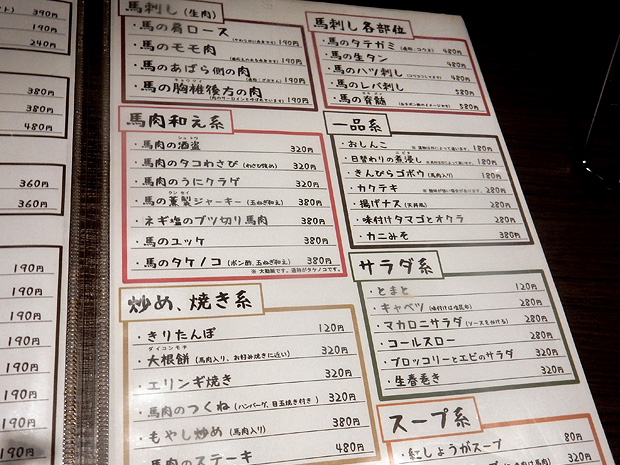 390円
190円
240円
380円
380円
480円
360円
360円
190円
190円
190円
190円
190円
190円
190円
190円
馬刺し(生肉)
・馬の肩ロース 190円
・馬のモモ肉 190円
・馬のあばら側の肉 190円
・馬の胸椎後方の肉 190円
馬肉和え系
・馬肉の酒盗 320円
・馬肉のタコわさび(わさび強め) 320円
・馬肉のうにクラゲ 320円
・馬の薫製ジャーキー(玉ねぎ和え) 380円
・ネギ塩のブツ切り馬肉 380円
・馬のユッケ 380円
・馬のタケノコ(ポン酢、玉ねぎ和え) 380円
※大動脈です。通称がタケノコです。
炒め、焼き系
・きりたんぽ 120円
ダイコンモチ
・大根餅(馬肉入り、お好み焼きに近い) 320円
・エリンギ焼き 320円
・馬肉のつくね(ハンバーグ、目玉焼き付き) 320円
・もやし炒め(馬肉入り) 380円
・馬肉のステーキ 480円
馬刺し各部位
・馬のタテガミ(通称:コウネ) 480円
・馬の生タン 480円
・馬のハツ刺し 480円
・馬のレバ刺し 580円
・馬の脊髄 580円
一品系
・おしんこ 180円
・日替わりの煮浸し 180円
・きんぴらゴボウ(馬肉入り) 180円
・カクテキ 280円
・揚げナス(天丼風) 280円
・味付けタマゴとオクラ 280円
・カニみそ 380円
サラダ系
・とまと 120円
・キャベツ(味付けは塩昆布) 280円
・マカロニサラダ(ソースをかける) 280円
・コールスロー 280円
・ブロッコリーとエビのサラダ 320円
・生春巻き 320円
スープ系
・紅しょうがスープ 80円
320円